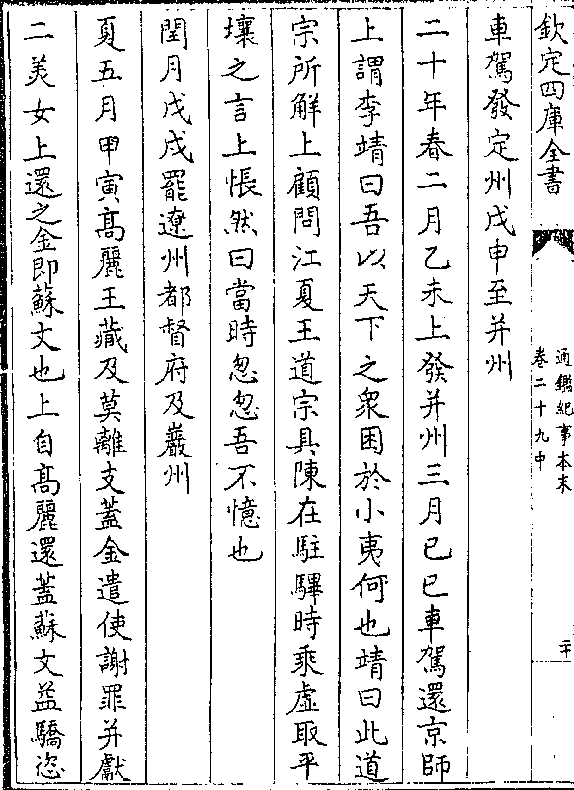 欽定四庫全書
通鑑紀事本末
卷二十九中
二十
車駕發定州戊申至并州
二十年春二月乙未上發并州三月已巳車駕還京師
上謂李靖曰吾以天下之衆困於小夷何也靖曰此道
宗所解上顧問江夏王道宗具陳在駐驆時乘虛取平
壤之言上悵然曰當時忽忽吾不憶也
閏月戊戌罷遼州都督府及巖州
夏五月甲寅髙麗王藏及莫離支蓋金遣使謝罪并獻
二美女上還之金即蘇文也上自髙麗還蓋蘇文益驕恣